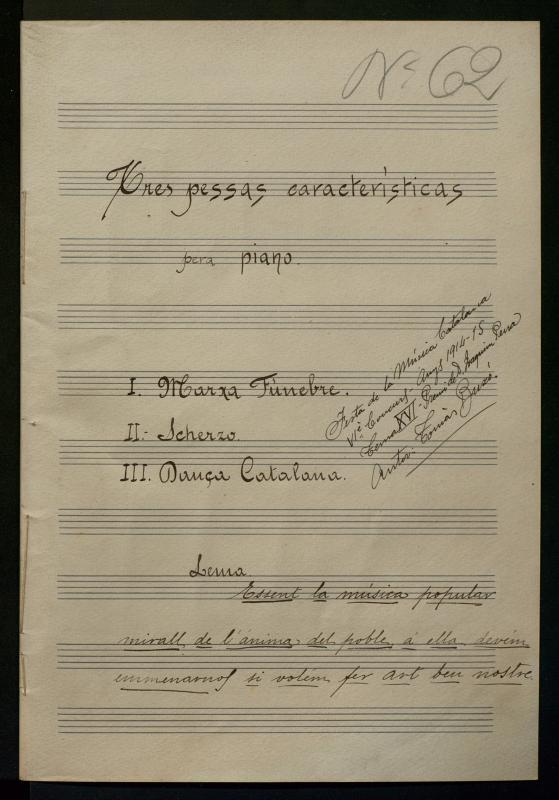 Nº 62
Tres pessas características
pera piano.
I. Marxa Fúnebre.
II.- Scherzo.
III. Dança Catalana.
Festa de la Música Catalana
VIè Concurs - Anys 1914-15
Tema XVI - Premi de D. Joaquim Pena
Autor: Tomàs Buxó.
Lema.
Essent la música popular
mirall de l'ánima del poble á ella devém
enmenarnos si volém fer art ben nostre.